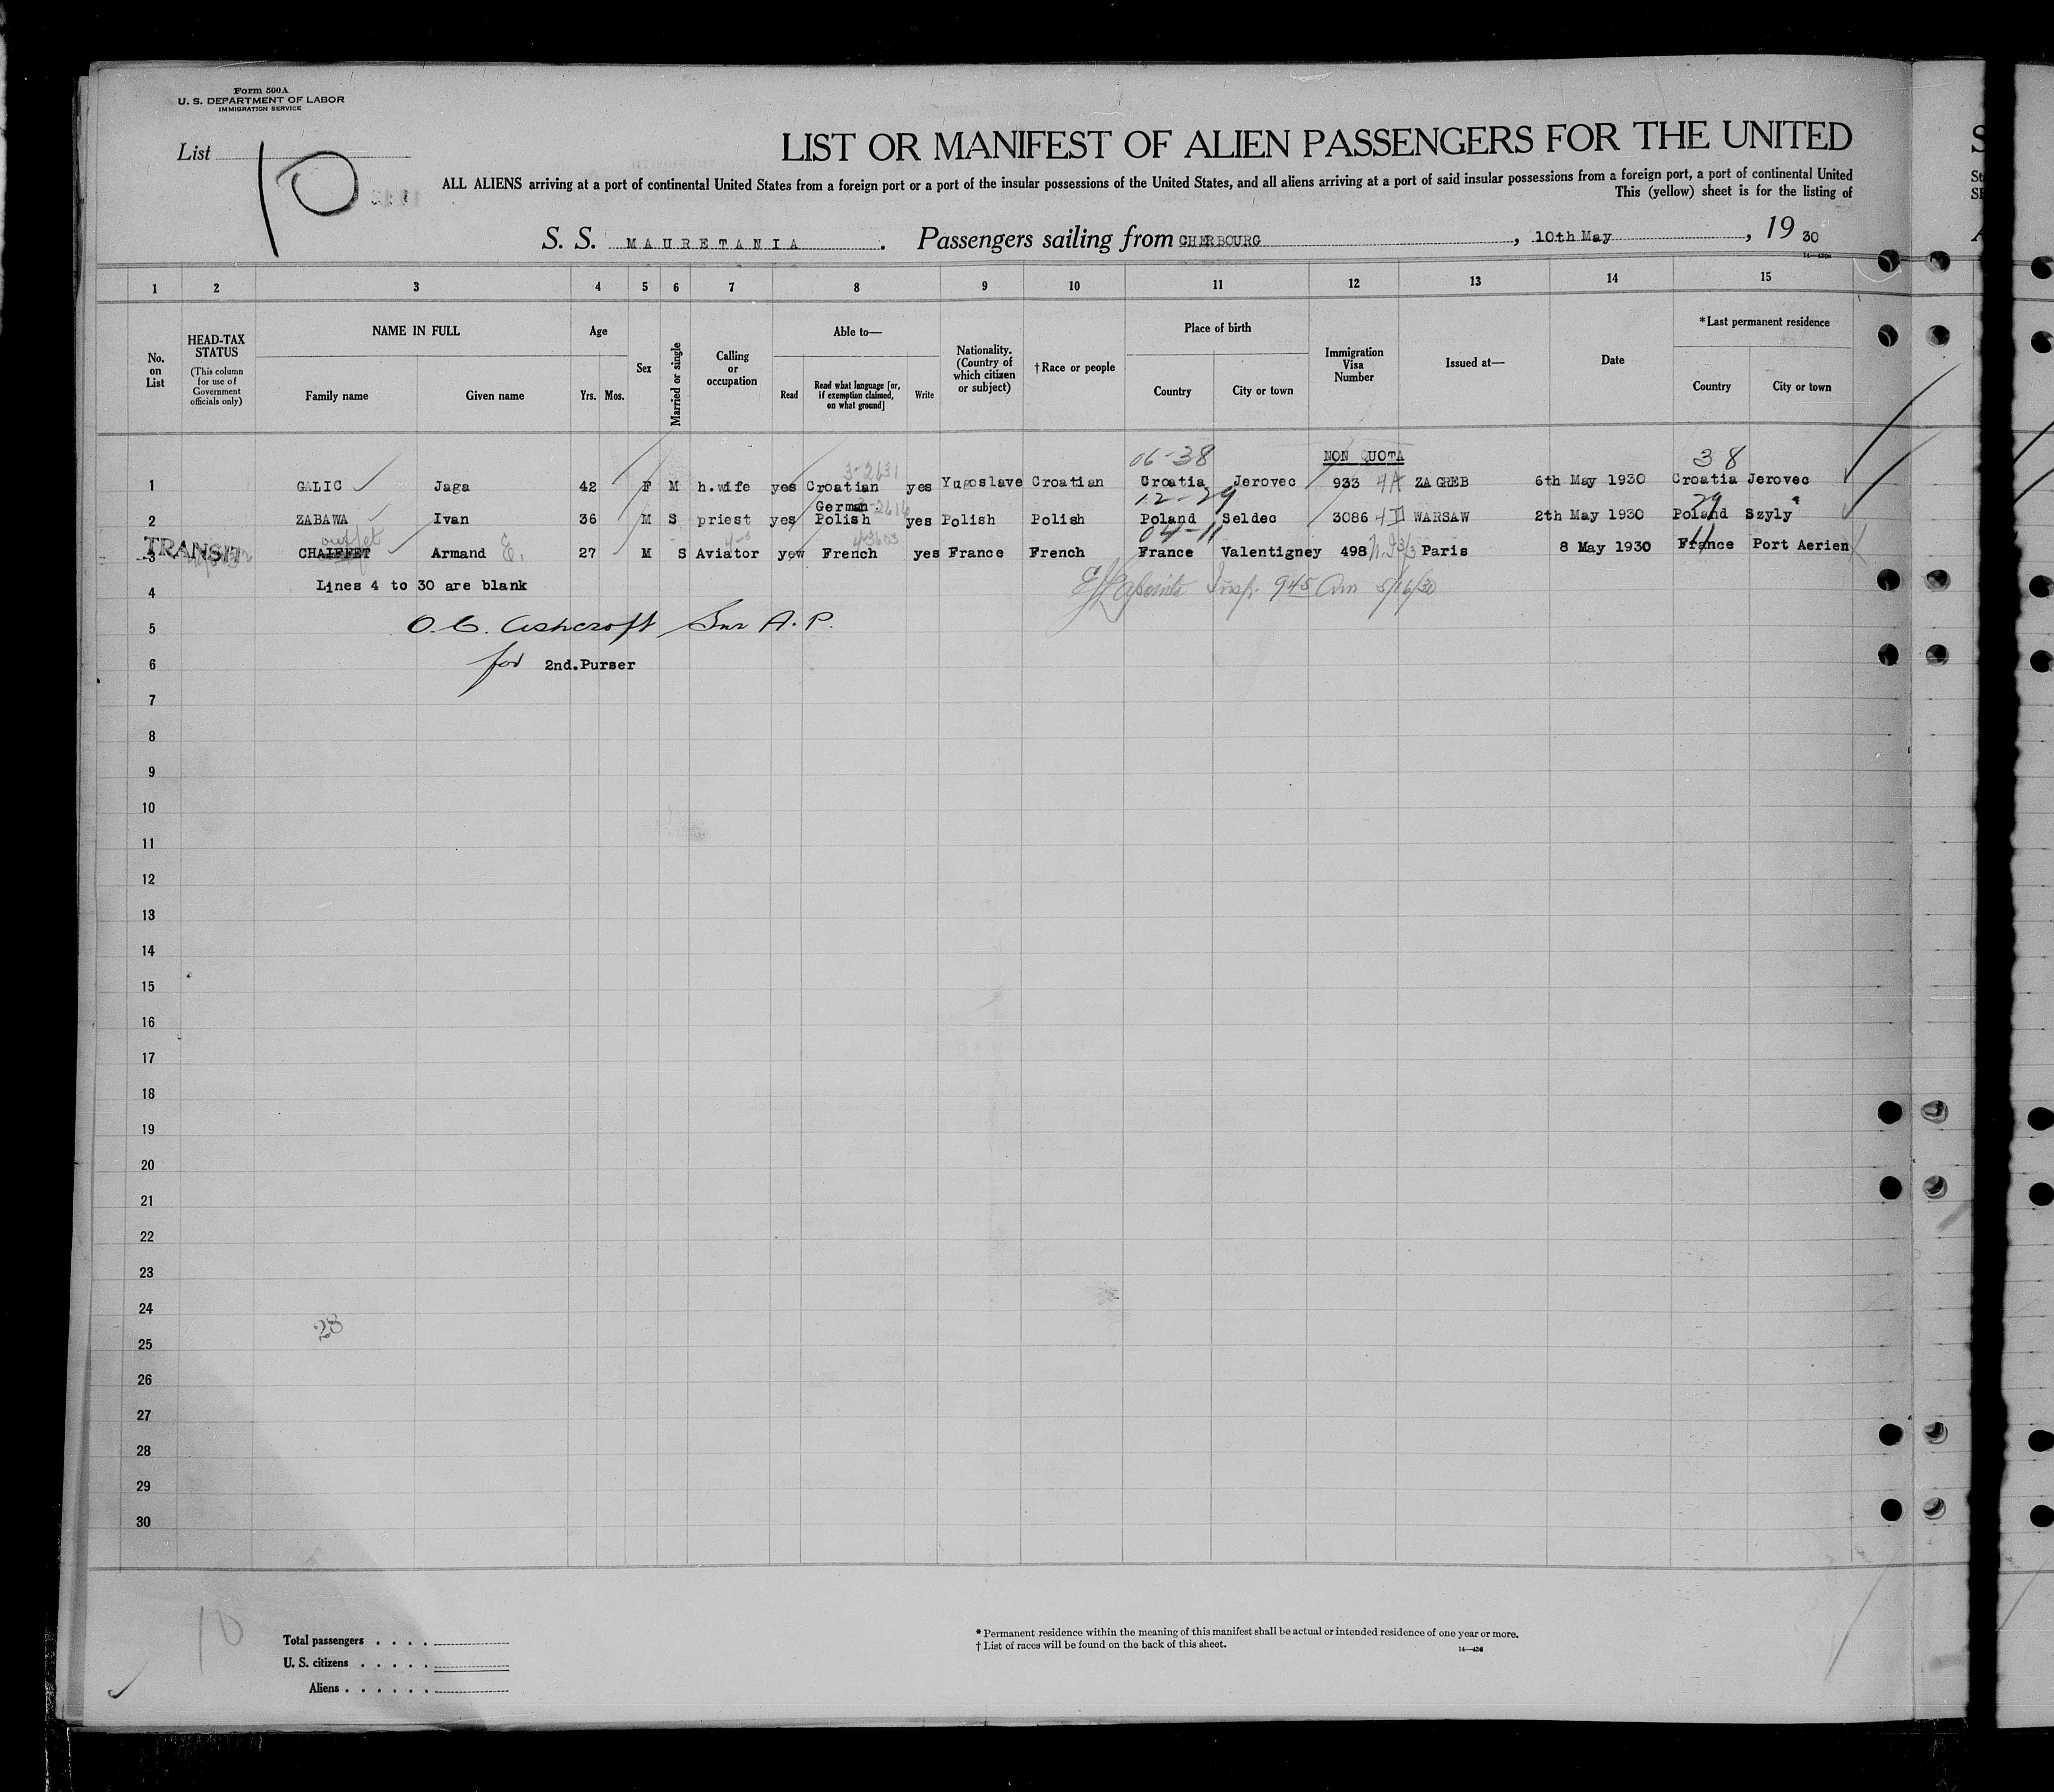 Form 500A
U. S. DEPARTMENT OF LABOR
IMMIGRATION SERVICE
List 10
LIST OR MANIFEST OF ALIEN PASSENGERS FOR THE UNITED
ALL ALIENS arriving at a port of continental United States from a foreign port or a port of the insular possessions of the United States, and all aliens arriving at a port of said insular possessions from a foreign port, a port of continental United
This (yellow) sheet is for the listing of
S. S. MAURETANIA. Passengers sailing from CHERBOURG, 10th May, 1930
1 2 3 4 5 6 7 8 9 10 11 12 13 14 15
No. on List
HEAD-TAX STATUS
(This column for use of Government officials only)
NAME IN FULL
Family name Given name
Age
Yrs. Mos.
Sex
Married or single
Calling or occupation
Able to—
Read
Read what language [or, if exemption claimed, on what ground]
Write
Nationality. (Country of which citizen or subject)
†Race or people
Place of birth
Country City or town
Immigration Visa Number
Issued at—
Date
*Last permanent residence
Country City or town
3-2631 06-38 NON QUOTA 38
1 GALIC Jaga 42 F M h.wife yes Croatian yes Yugoslave Croatian Croatia Jerovec 933 4A ZAGREB 6th May 1930 Croatia Jerovec
German 12-29 29
2 ZABAWA Ivan 36 M S priest yes Polish yes Polish Polish Poland Seldec 3086 4D WARSAW 2th May 1930 Poland Szyly
04-11 11
TRANSIT
3 CHAIFFET Armand E. 27 M S Aviator yew French yes France French France Valentigney 498 Paris 8 May 1930 France Port Aerien
4 Lines 4 to 30 are blank Insp. 945 Am 5/16/30
5 O. C. Ashcroft Snr A. P.
6 for 2nd.Purser
7
8
9
10
11
12
13
14
15
16
17
18
19
20
21
22
23
24
28
25
26
27
28
29
30
10
Total passengers
U. S. citizens
Aliens
* Permanent residence within the meaning of this manifest shall be actual or intended residence of one year or more.
† List of races will be found on the back of this sheet.